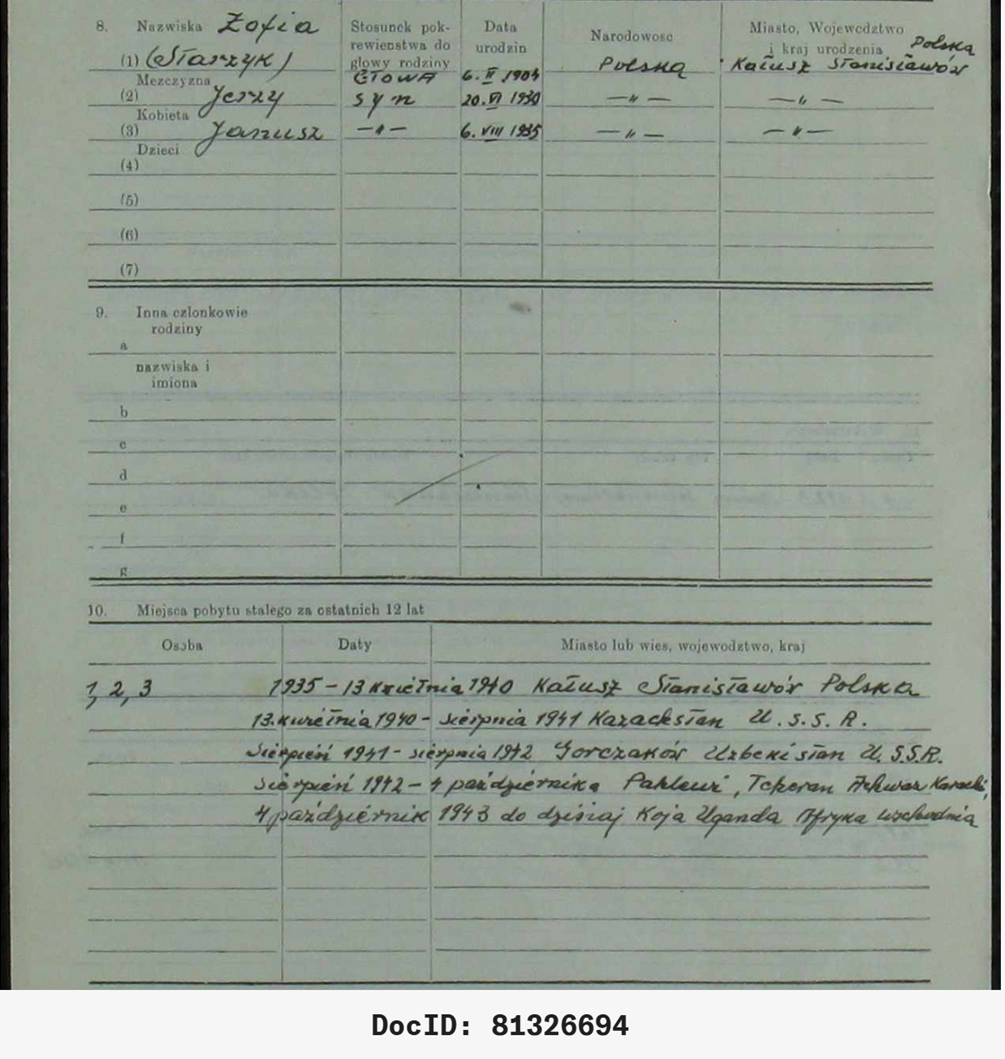 8. Nazwiska Zofia Stosunek pok- Data Narodowosc Miasto, Wojewodztwo
rewienstwa do urodzin i kraj urodzenia Polska
(1) (Starzyk) glowy rodziny
Głowa 6. II 1904 Polska Kałusz Stanisławów
Mezczyzna
(2) Jerzy syn 20. VI 1930 —〃— —〃—
Kobieta
(3) Janusz —〃— 6. VIII 1935 —〃— —〃—
Dzieci
(4)
(5)
(6)
(7)
9. Inna czlonkowie
rodziny
a
nazwiska i
imiona
b
c
d
e
f
g
10. Miejsca pobytu stalego za ostatnich 12 lat
Osoba Daty Miasto lub wies, wojewodztwo, kraj
1, 2, 3 1935 – 13 kwietnia 1940 Kałusz Stanisławów Polska
13. kwietnia 1940 – sierpnia 1941 Kazachstan U. S. S. R.
Sierpień 1941 – sierpnia 1942 Gorczaków Uzbekistan U. S.S.R.
sierpień 1942 – 4 października Pahlewi, Teheran Achwaz Karachi,
4 październik 1943 do dzisiaj Koja Uganda Afryka wschodnia
DocID: 81326694